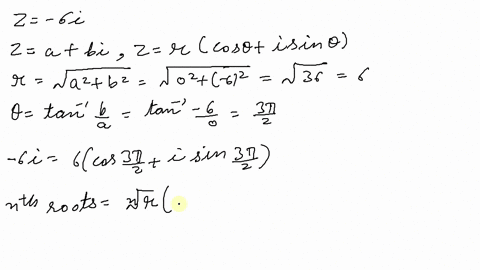 z = -6i
z = a + bi , z = r (cosθ + i sinθ)
r = √(a² + b²) = √(0² + (-6)²) = √36 = 6
θ = tan⁻¹ b/a = tan⁻¹ -6/0 = 3π/2
-6i = 6(cos 3π/2 + i sin 3π/2)
nth roots = ⁿ√r (